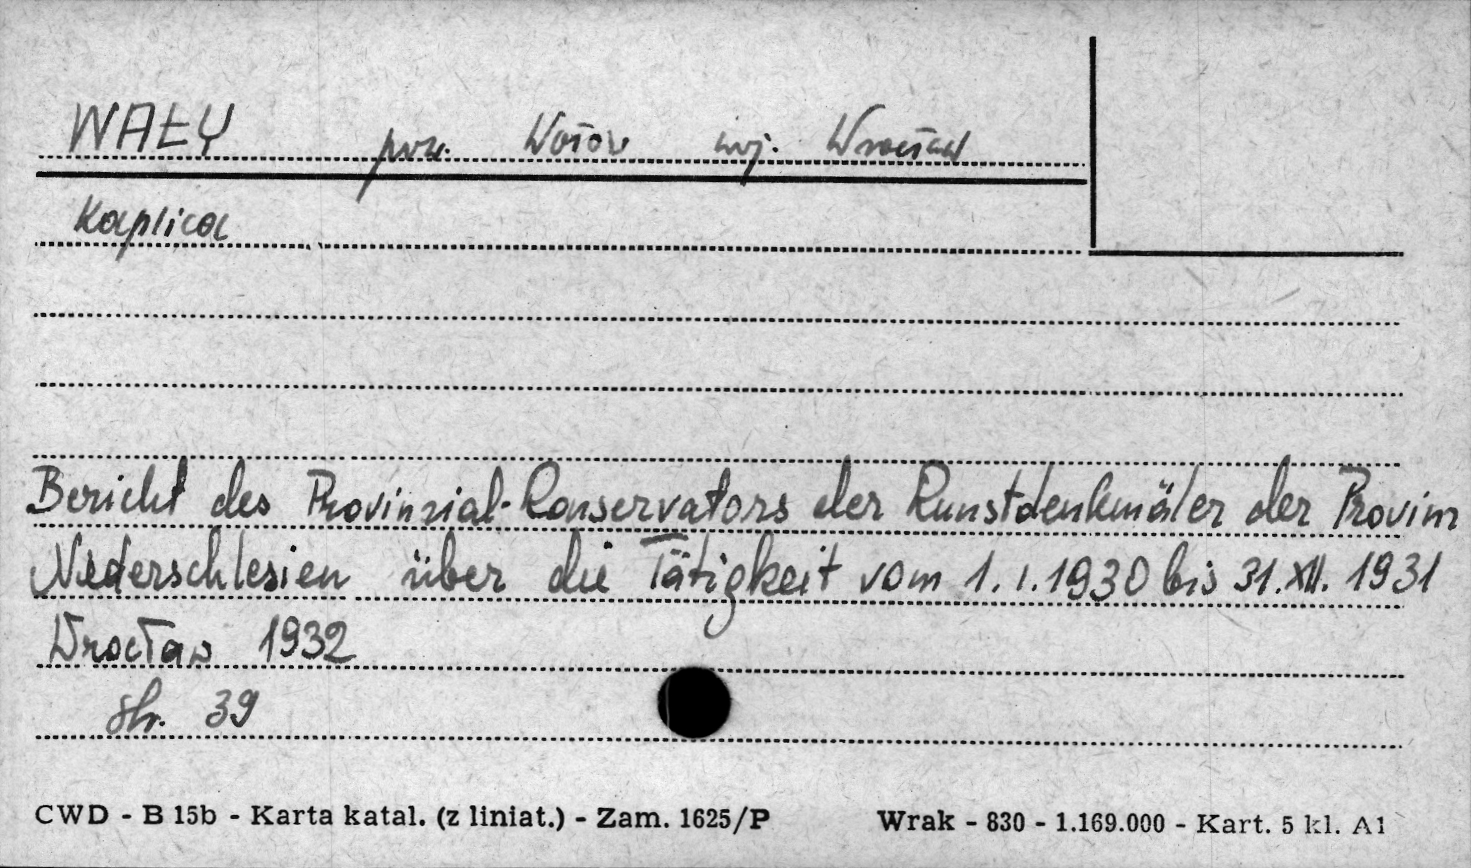 WAŁY pow. Wołów woj. Wrocław
Kaplica
Bericht des Provinzial-Konservators der Kunstdenkmäler der Provinz
Niederschlesien über die Tätigkeit vom 1.I.1930 bis 31.XII.1931
Wrocław 1932
str. 39
CWD - B 15b - Karta katal. (z liniat.) - Zam. 1625/P Wrak - 830 - 1.169.000 - Kart. 5 kl. A1